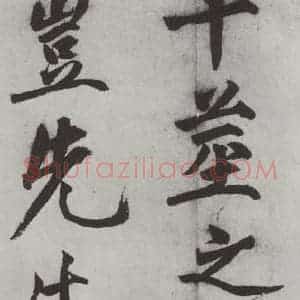 莖之
豈先生
Shufaziliao.COM